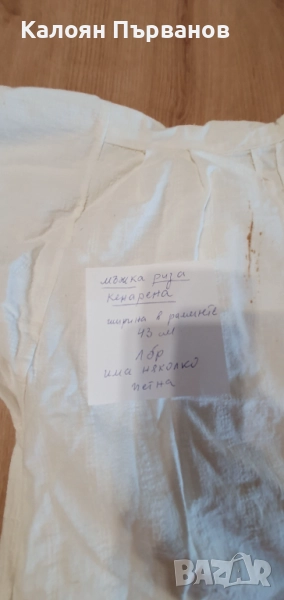 Калоян Първанов
мъжка риза
кенарена
ширина в рамнете
43 см
1 бр
има няколко
петна
BAZAR